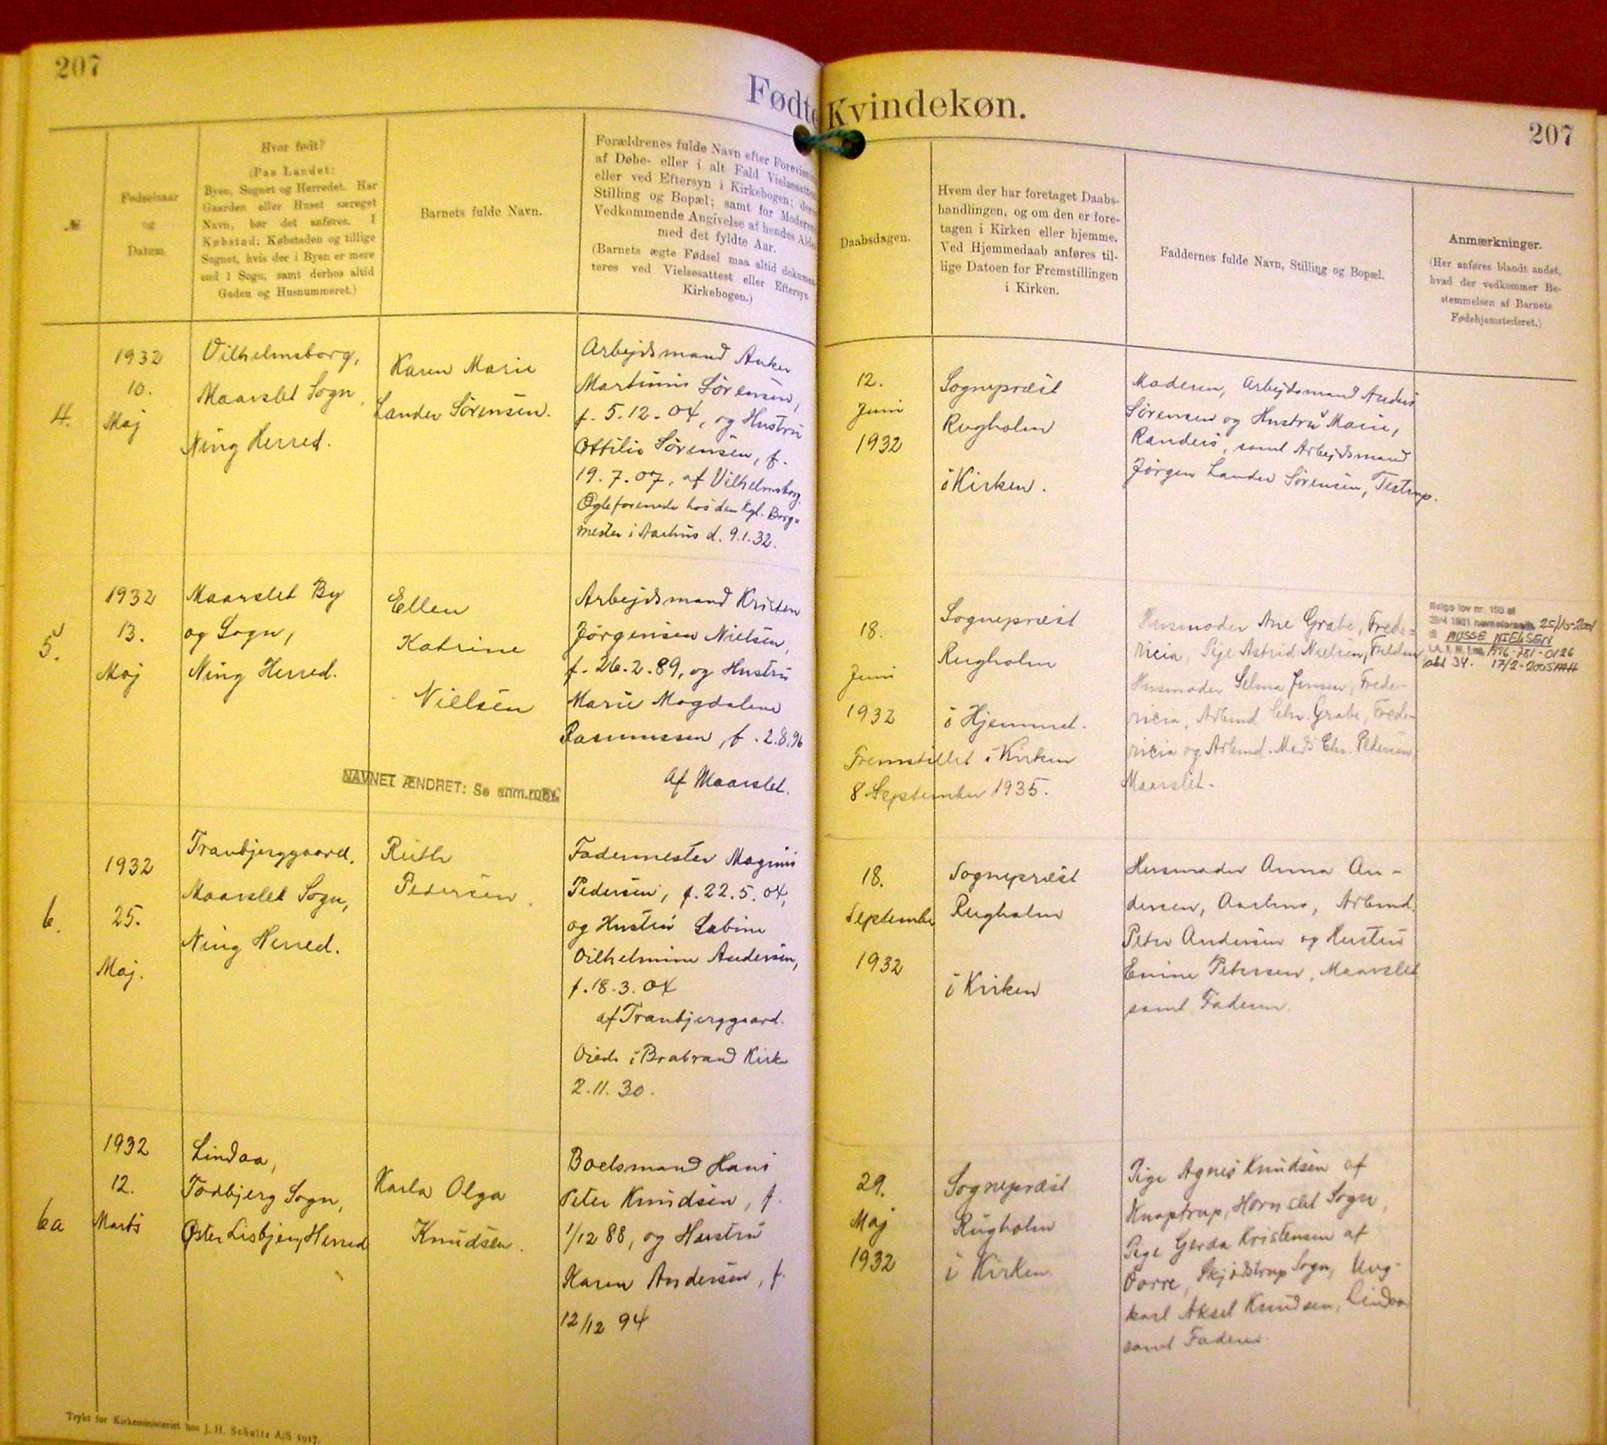 207
Fødte
Kvindekøn.
207
№
Fødselsaar
og
Datum.
Hvor født?
(Paa Landet:
Byen, Sognet og Herredet. Har
Gaarden eller Huset særeget
Navn, bør det anføres. I
Købstad: Købstaden og tillige
Sognet, hvis der i Byen er mere
end 1 Sogn, samt derhos altid
Gaden og Husnummeret.)
Barnets fulde Navn.
Forældrenes fulde Navn efter
af Døbe- eller i alt Fald
eller ved Eftersyn i Kirkebogen;
Stilling og Bopæl; samt for
Vedkommende Angivelse af hendes
med det fyldte Aar.
(Barnets ægte Fødsel maa altid
teres ved Vielsesattest eller Eftersyn
Kirkebogen.)
Daabsdagen.
Hvem der har foretaget Daabs-
handlingen, og om den er fore-
tagen i Kirken eller hjemme.
Ved Hjemmedaab anføres til-
lige Datoen for Fremstillingen
i Kirken.
Faddernes fulde Navn, Stilling og Bopæl.
Anmærkninger.
(Her anføres blandt andet,
hvad der vedkommer Be-
stemmelsen af Barnets
Fødehjemstederet.)
4.
1932
10.
Maj
Vilhelmsborg,
Maarslet Sogn,
Ning Herred.
Karen Marie
Lander Sørensen.
Arbejdsmand Anker
Martinus Sørensen,
f. 5.12.04, og Hustru
Ottilie Sørensen, f.
19.7.07, af Vilhelmsborg.
Ægteforenede hos den Kgl. Borg-
mester i Aarhus d. 9.1.32.
12.
Juni
1932
Sognepræst
Rugholm
i Kirken.
Moderen, Arbejdsmand Anders
Sørensen og Hustru Marie,
Randers, samt Arbejdsmand
Jørgen Lander Sørensen, Testrup.
5.
1932
13.
Maj
Maarslet By
og Sogn,
Ning Herred.
Ellen
Katrine
Nielsen
NAVNET ÆNDRET: Se anm.rubr.
Arbejdsmand Kristen
Jørgensen Nielsen,
f. 26.2.89, og Hustru
Marie Magdalene
Rasmussen, f. 2.8.96
af Maarslet.
18.
Juni
1932
Sognepræst
Rugholm
i Hjemmet.
Fremstillet i Kirken
8 September 1935.
Husmoder Ane Grabe, Frede-
ricia, Pige Astrid Nielsen,
Husmoder Selma Jensen, Frede-
ricia, Arbmd. Chr. Grabe, Frede-
ricia og Arbmd. Mads Chr. Petersen
Maarslet.
Ifølge lov nr. 193 af
29/4 1981 25/10-2004
MUSSE NIELSEN
17/2-2005
6.
1932
25.
Maj.
Tranbjerggaard,
Maarslet Sogn,
Ning Herred.
Ruth
Pedersen.
Fodermester Magnus
Pedersen, f. 22.5.04,
og Hustru Sabine
Vilhelmine Andersen,
f. 18.3.04
af Tranbjerggaard.
Viede i Brabrand Kirke
2.11.30.
18.
September
1932
Sognepræst
Rugholm
i Kirken
Husmoder Anna An-
dersen, Aarhus, Arbmd.
Peter Andersen og Hustru
Emine Petersen, Maarslet
samt Faderen.
6a
1932
12.
Marts
Lindaa,
Todbjerg Sogn,
Øster Lisbjerg Herred
Karla Olga
Knudsen.
Boelsmand Hans
Peter Knudsen, f.
1/12 88, og Hustru
Karen Andersen, f.
12/12 94
29.
Maj
1932
Sognepræst
Rugholm
i Kirken
Pige Agnes Knudsen af
Knaptrup, Hornslet Sogn,
Pige Gerda Kristensen af
Vorre, Skjødstrup Sogn, Ung-
karl Aksel Knudsen, Lindaa
samt Faderen.
Trykt for Kirkeministeriet hos J. H. Schultz A/S 1917.